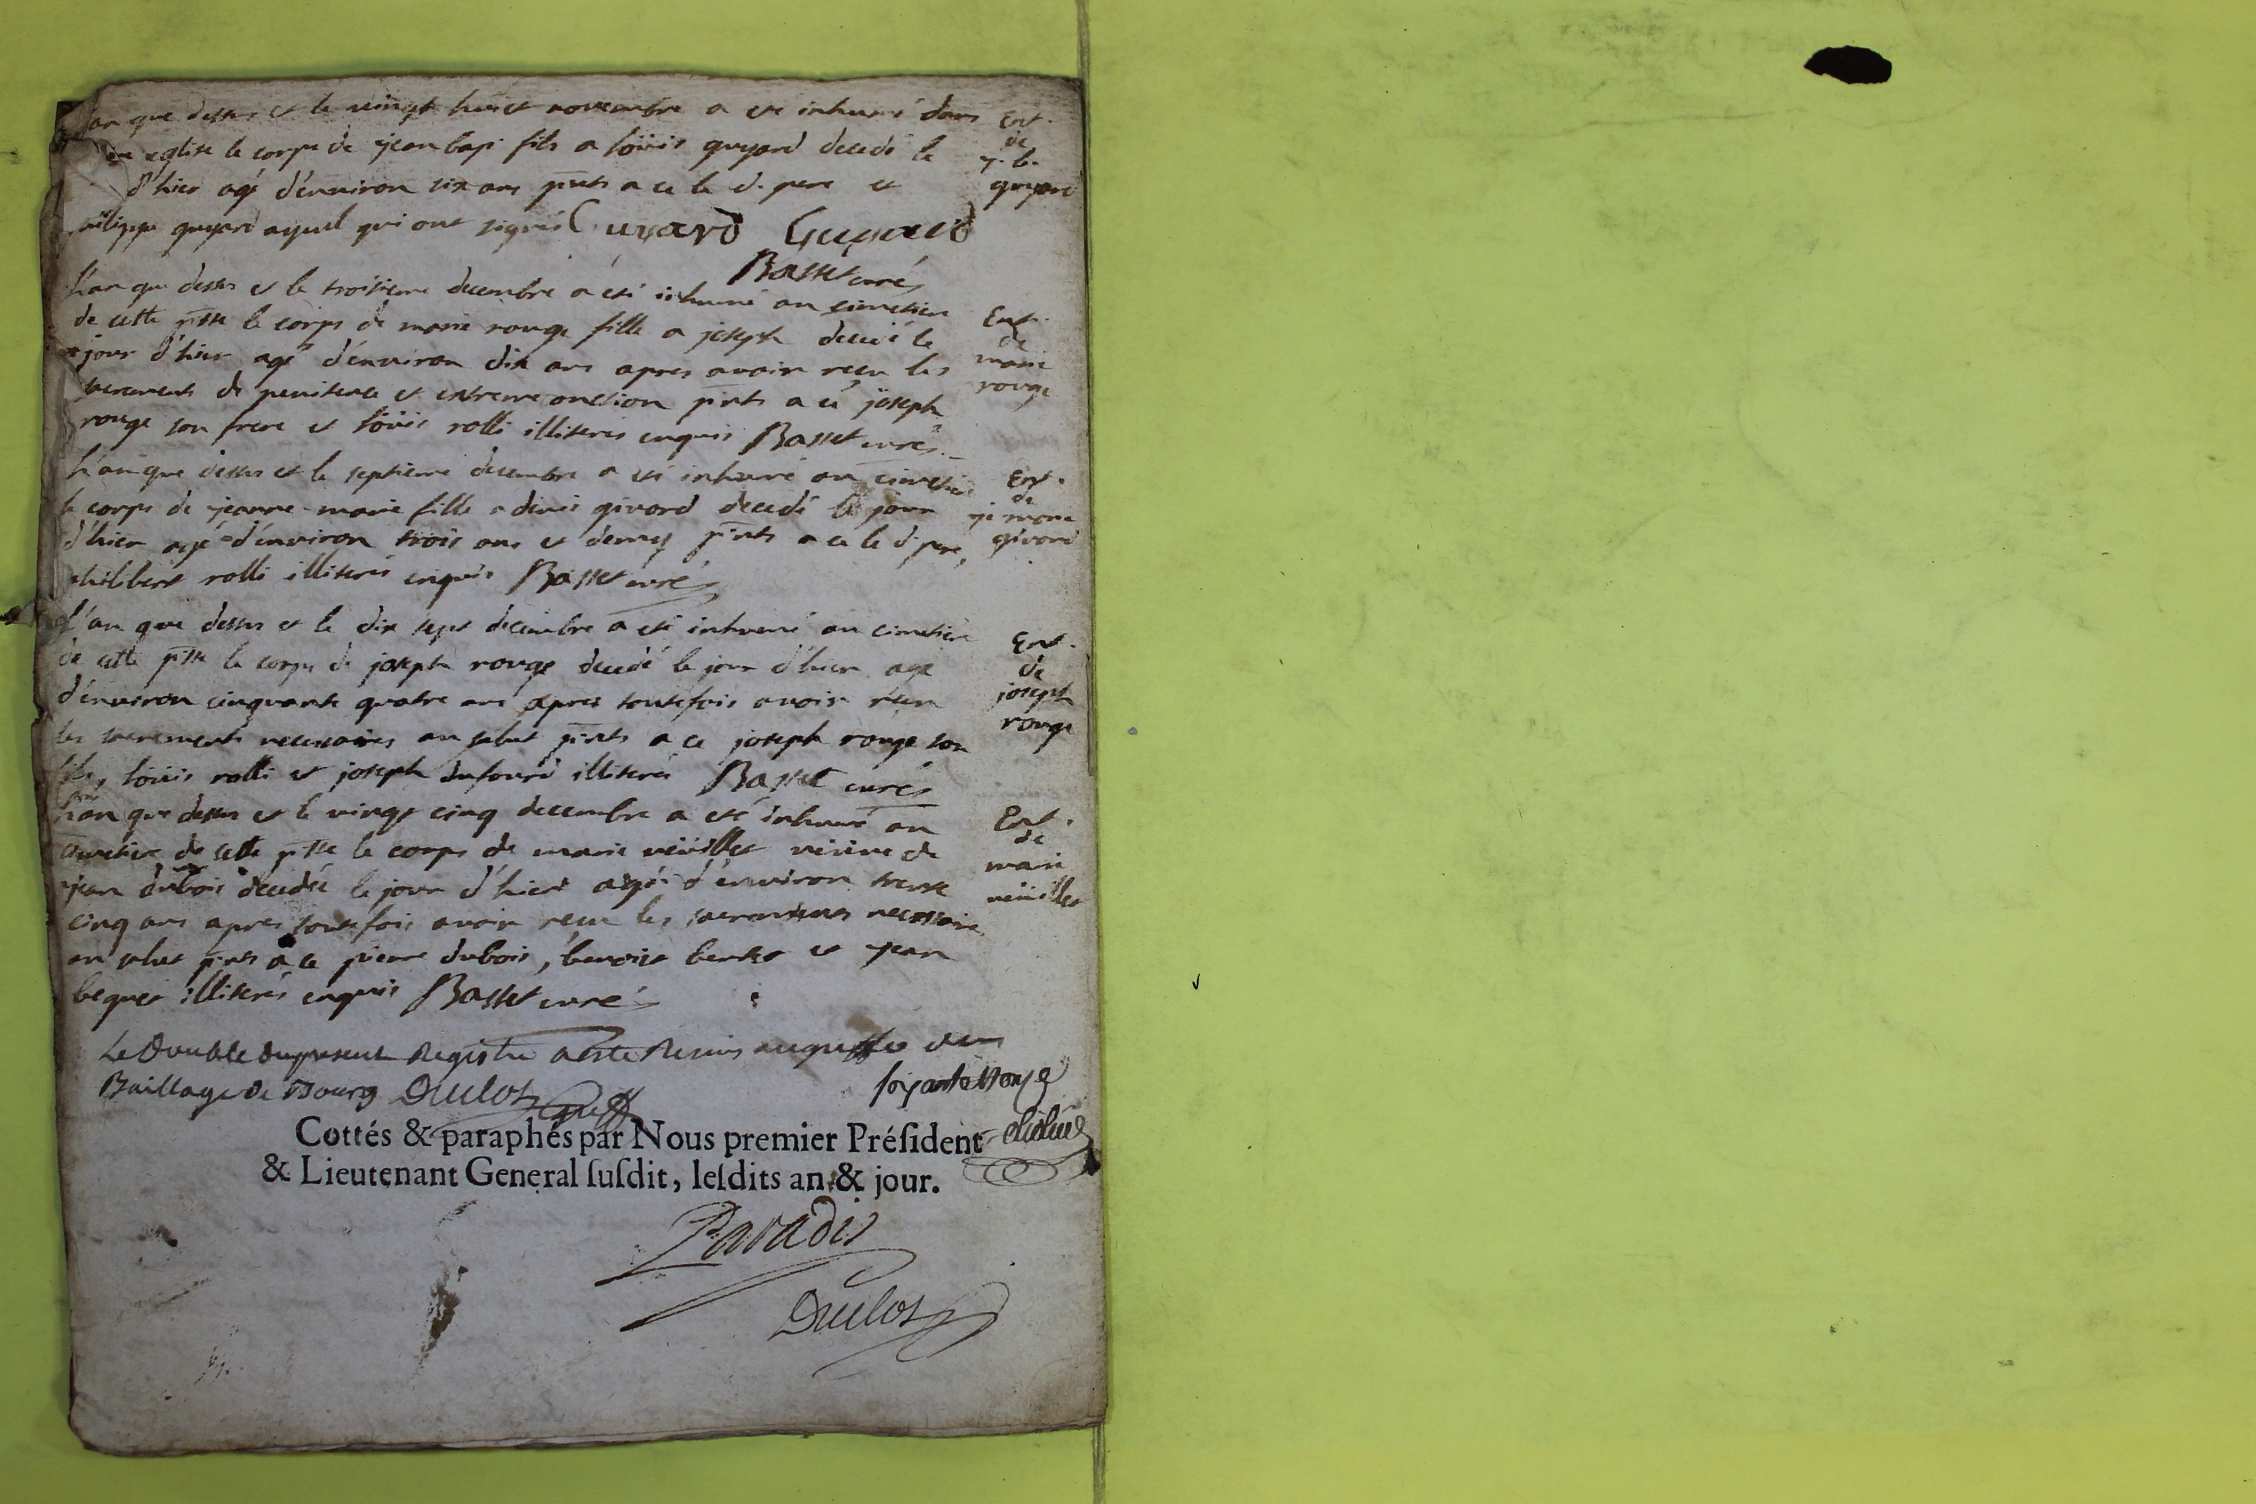 l'an que dessus et le vingt huict novembre a ete inhumé dans
eglise le corps de jean bap. fils a loüis guyard decedé le
d'hier agé d'environ six ans pnts a ce le d. pere et
philippe guyard ayeul qui ont signés Guyard Guyard
Basset curé
Ent.
de
j. b.
guyard
l'an que dessus et le troisieme decembre a été inhumé au cimetiere
de cette psse le corps de marie rouge fille a joseph decedé le
jour d'hier agé d'environ dix ans apres avoir reçu les
sacrements de penitence et extreme onction pnts a ce joseph
rouge son frere et loüis rolli illiterés enquis Basset curé
Ent.
de
marie
rouge
l'an que dessus et le septieme decembre a été inhumé au cimetiere
le corps de jeanne-marie fille a denis givord decedé le jour
d'hier agé d'environ trois ans et demy pnts a ce le d. pere,
philibert rolli illiterés enquis Basset curé
Ent.
de
je marie
givord
l'an que dessus et le dix sept decembre a été inhumé au cimetiere
de cette psse le corps de joseph rouge decedé le jour d'hier agé
d'environ cinquante quatre ans apres toutefois avoir reçu
les sacrements necessaires au salut pnts a ce joseph rouge son
fils, loüis rolli et joseph dufourd illiterés Basset curé
Ent.
de
joseph
rouge
l'an que dessus et le vingt cinq decembre a été inhumé au
cimetiere de cette psse le corps de marie veüillet veüve de
jean dubois decedée le jour d'hier agé d'environ trente
cinq ans apres toutefois avoir reçu les sacrements necessaire
au salut pnts a ce pierre dubois, benoist et jean
beguet illiterés enquis Basset curé
Ent.
de
marie
veüillet
Le Double du present Registre a este Remis au greffe du
Baillage de Bourg Duclos greff
Cottés & paraphés par Nous premier Préſident
& Lieutenant General ſuſdit, leſdits an & jour.
Paradis
Duclos